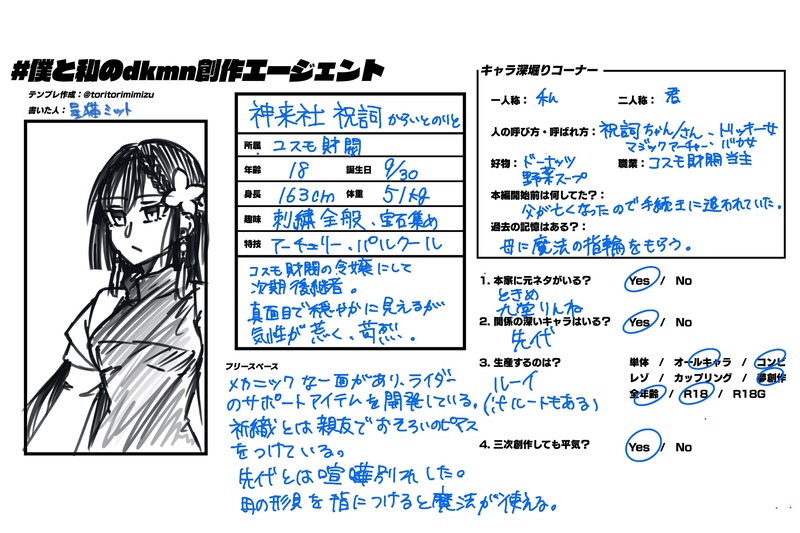 #僕と私のdkmn創作エージェント
テンプレ作成：@toritorimimizu
書いた人：星猫ミット
神来社 祝詞 からいとのりと
所属 コスモ財閥
年齢 18 誕生日 9/30
身長 163cm 体重 51kg
趣味 刺繍全般、宝石集め
特技 アーチェリー、パルクール
コスモ財閥の令嬢にして
次期後継者。
真面目で穏やかに見えるが
気性が荒く、苛烈。
フリースペース
メカニックな一面があり、ライダー
のサポートアイテムを開発している。
祈織とは親友でおそろいのピアス
をつけている。
先代とは喧嘩別れした。
母の形見を指につけると魔法が使える。
キャラ深堀りコーナー
一人称： 私 二人称： 君
人の呼び方・呼ばれ方：祝詞ちゃん/さん、トリッキー女
マジックアーチャー、バカ女
好物：ドーナッツ 職業：コスモ財閥当主
野菜スープ
本編開始前は何してた？：
父が亡くなったので手続きに追われていた。
過去の記憶はある？：
母に魔法の指輪をもらう。
1. 本家に元ネタがいる？ Yes / No
ときめ
九堂りんね
2. 関係の深いキャラはいる？ Yes / No
先代
3. 生産するのは？ 単体 / オールキャラ / コンビ
ルーイ レゾ / カップリング / 夢創作
(ルートもある) 全年齢 / R18 / R18G
4. 三次創作しても平気？ Yes / No